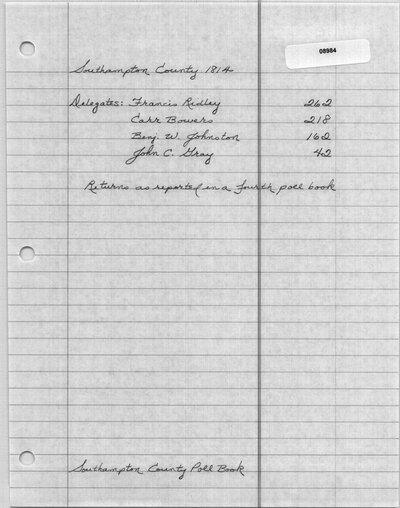 08984
Southampton County 1814
Delegates: Francis Ridley 262
Carr Bowers 218
Benj. W. Johnston 162
John C. Gray 42
Returns as reported in a fourth poll book
Southampton County Poll Book